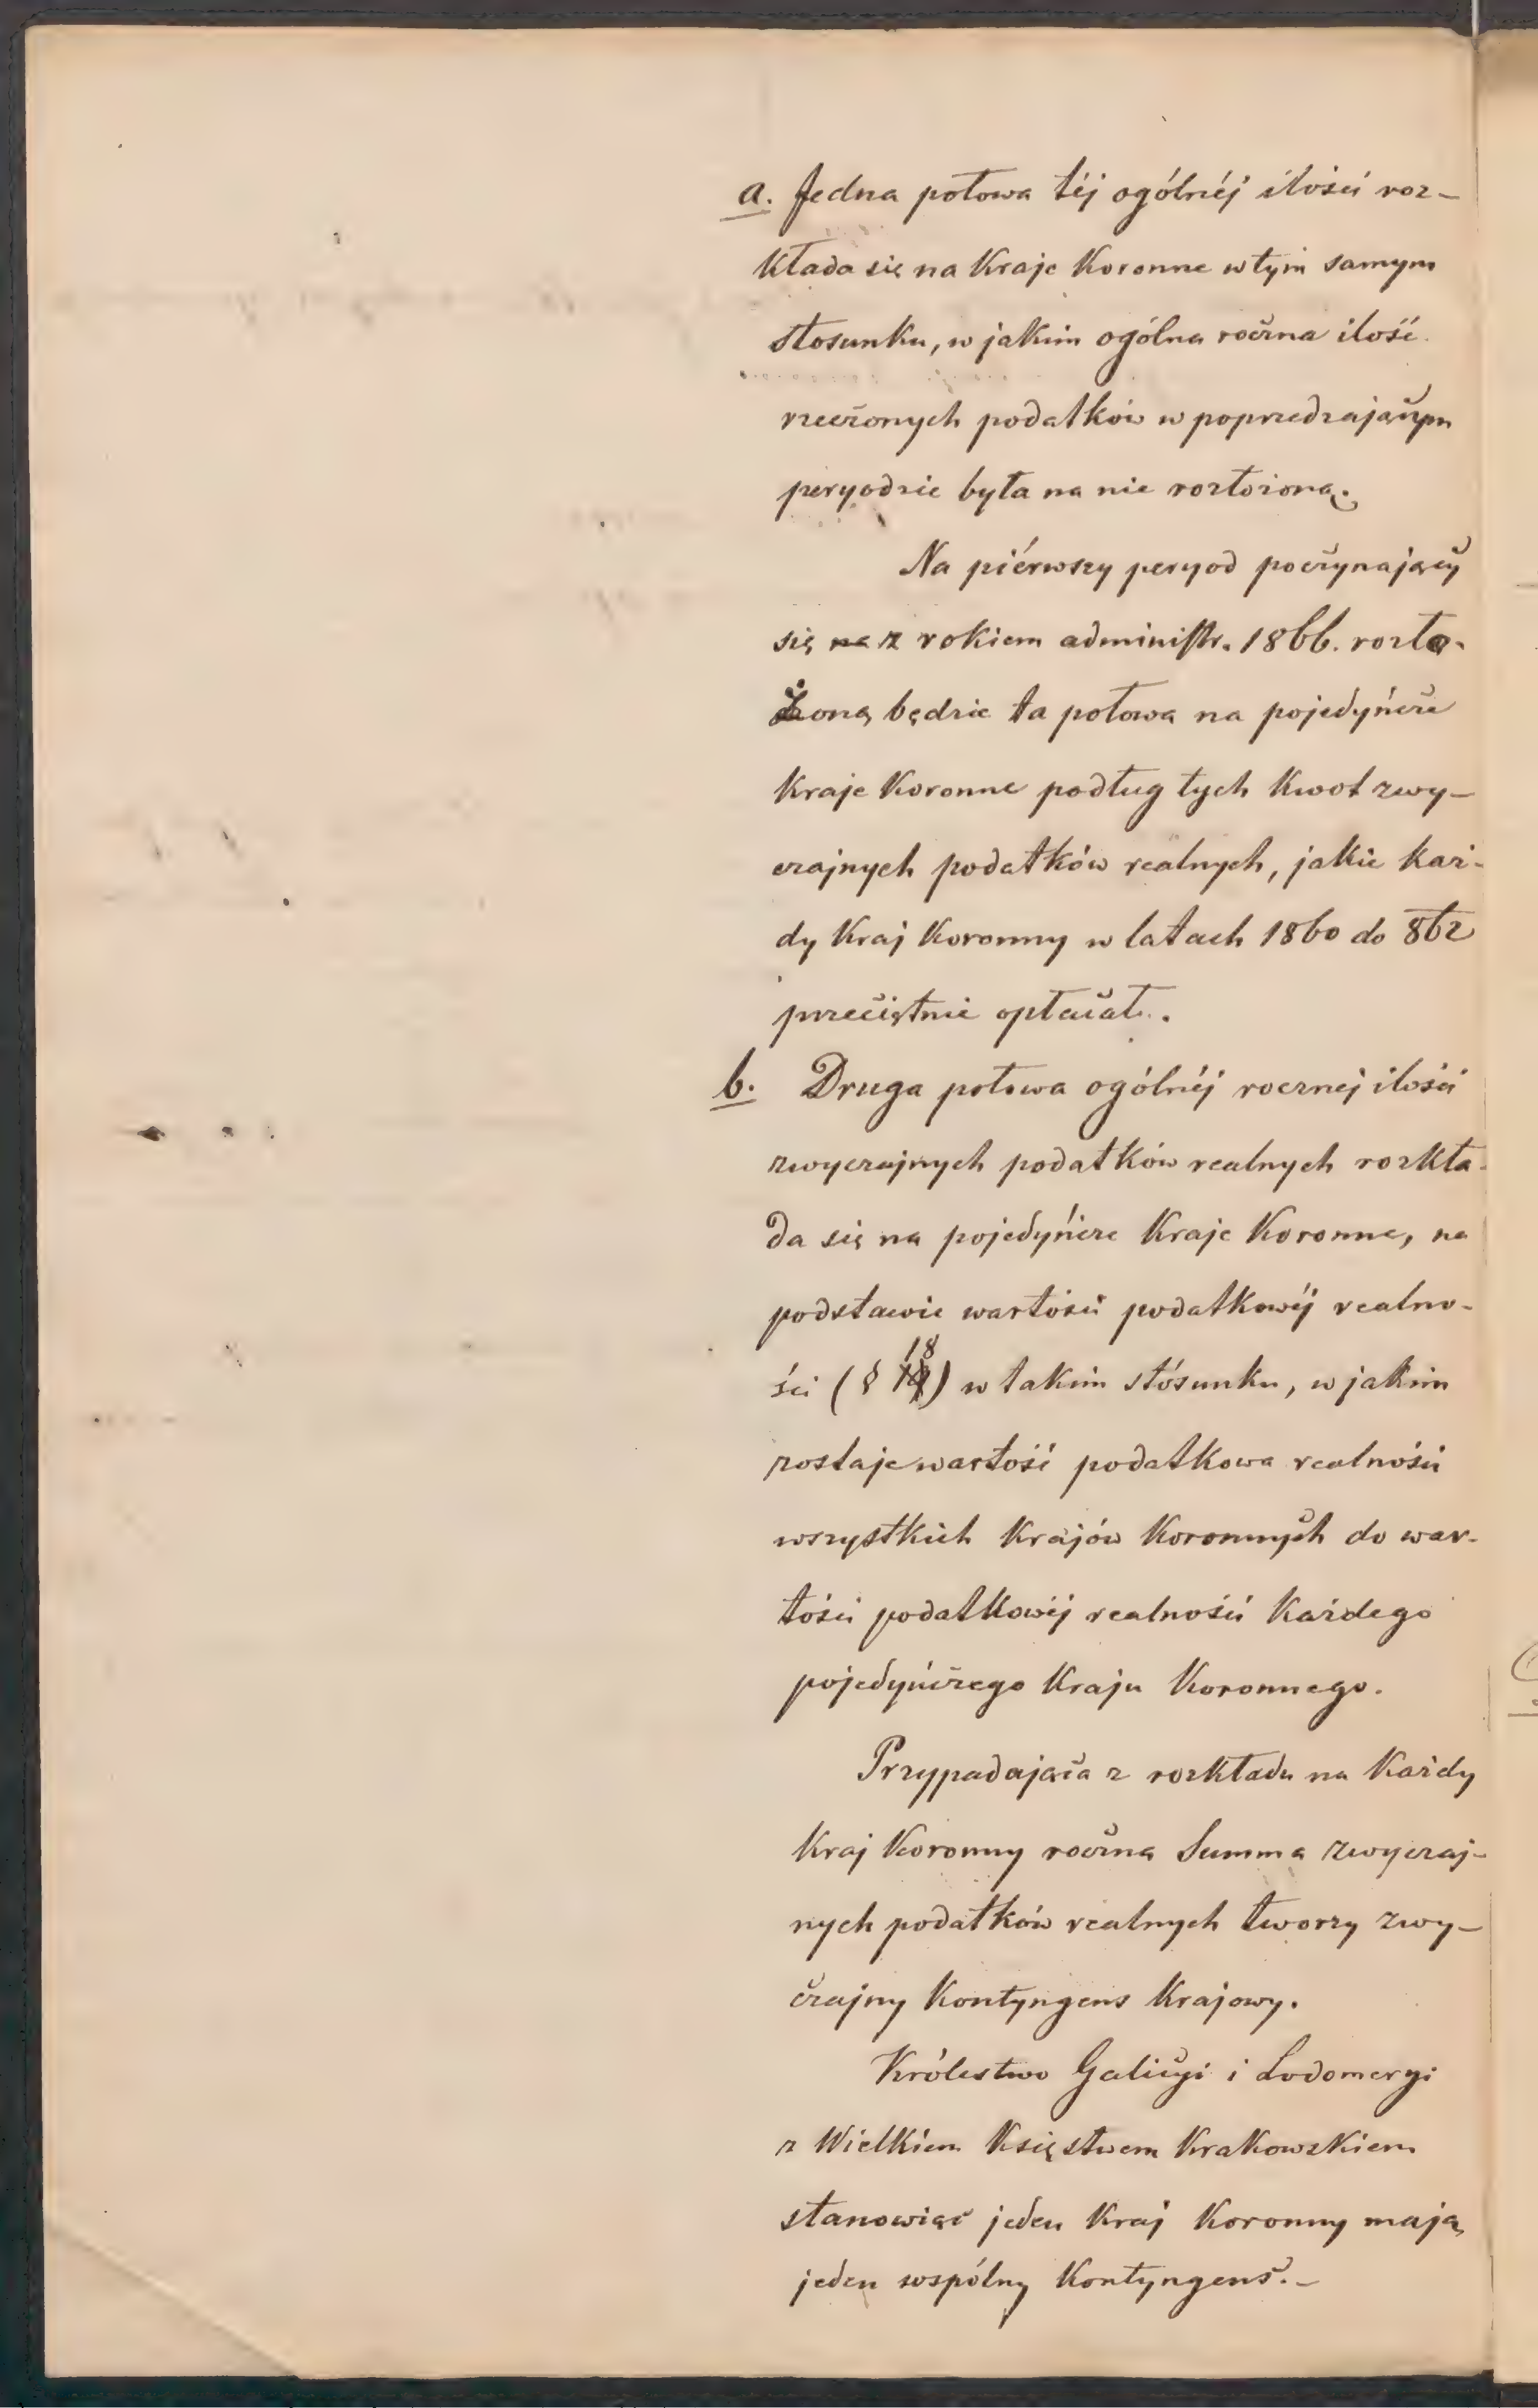 a. Jedna połowa téj ogólnéj ilości roz-
kłada się na Kraje Koronne w tym samym
stosunku, w jakim ogólna roczna ilość
rzeczonych podatków w poprzedzającym
peryodzie była na nie rozłożoną.
Na piérwszy peryod poczynający
się na z rokiem administr. 1866. rozło-
żoną będzie ta połowa na pojedyńcze
Kraje Koronne podług tych Kwot zwy-
czajnych podatków realnych, jakie każ-
dy Kraj Koronny w latach 1860 do 862
przeciętnie opłacał.
b. Druga połowa ogólnéj rocznéj ilości
zwyczajnych podatków realnych rozkła-
da się na pojedyńcze Kraje Koronne, na
podstawie wartości podatkowéj realno-
ści (§ 18) w takim stósunku, w jakim
zostaje wartość podatkowa realności
wszystkich Krajów Koronnych do war-
tości podatkowéj realności Każdego
pojedyńczego Kraju Koronnego.
Przypadająca z rozkładu na Każdy
Kraj Koronny roczna Summa zwyczaj-
nych podatków realnych tworzy zwy-
czajny Kontyngens Krajowy.
Królestwo Galicyi i Lodomeryi
z Wielkiem Księstwem Krakowskiem
stanowiąc jeden Kraj Koronny mają
jeden wspólny Kontyngens.-